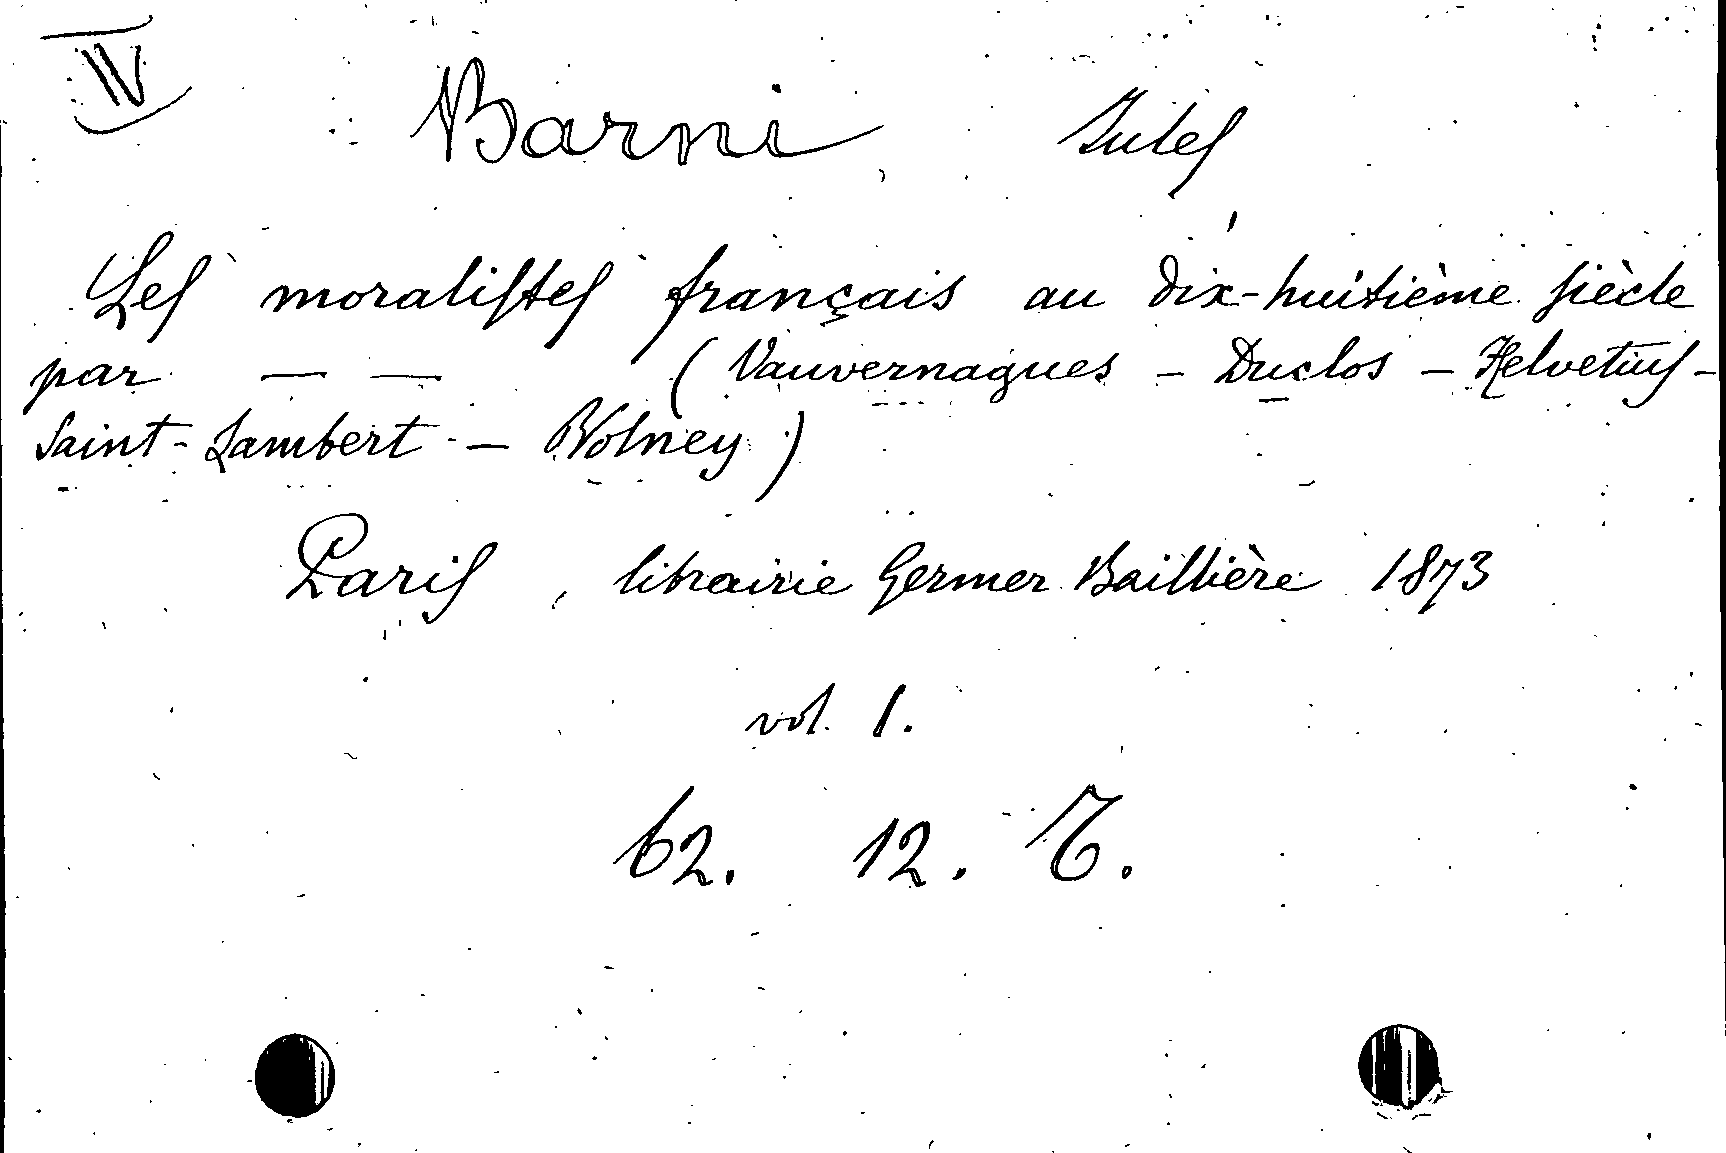 IV
Barni Jules
Les moralistes français au dix-huitième siècle
par — — (Vauvernagues - Duclos - Helvetius -
Saint-Lambert - Volney)
Paris, librairie Germer Baillière 1873
vol. 1.
62. 12. T.